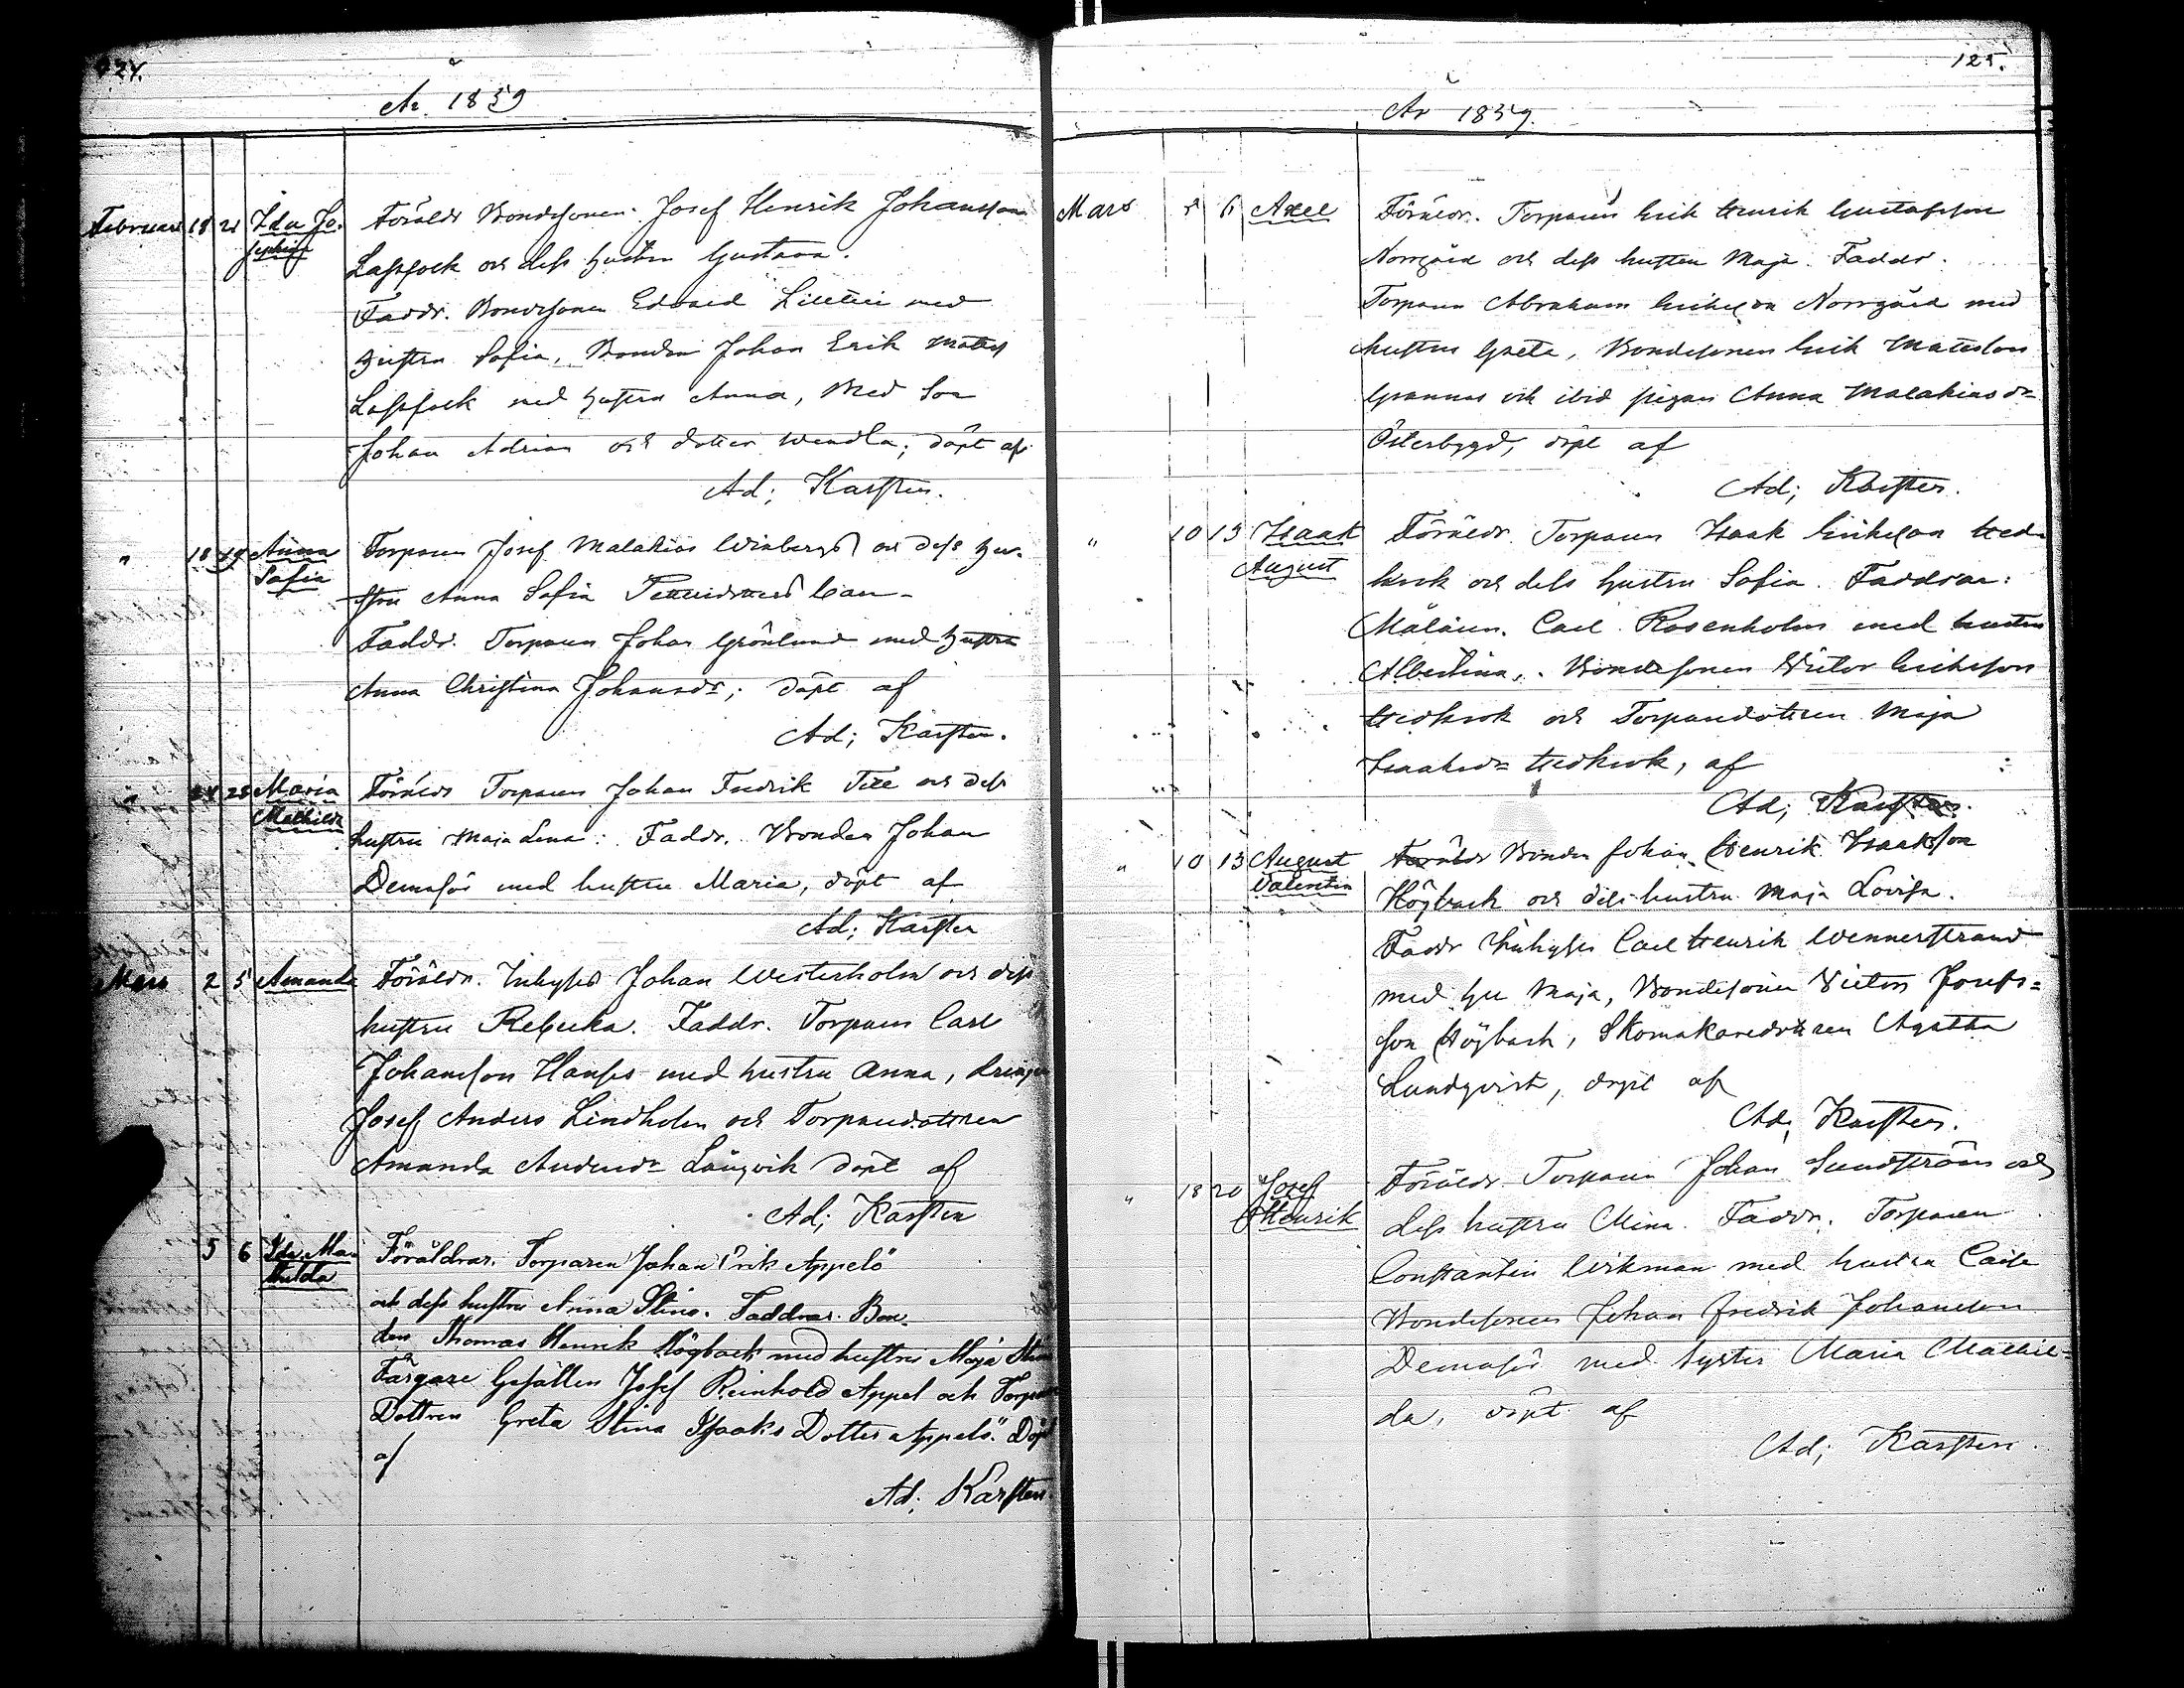 124.
År 1859
Februari 18 21 Ida Jo- Föräldr Bondesonen Josef Henrik Johansson
sephina Lassfolk och dess hustru Gustava.
Faddr. Bondesonen Edvard Lilltii med
hustru Sofia, Bonden Johan Erik Matts
Lassfolk med hustru Anna, Med Son
Johan Adrian och dotter Wendla; döpt af
Ad; Karsten.
" 18 19 Anna Torparen Josef Malakias Winbergs och dess hu-
Sofia stru Anna Sofia
Faddr. Torparen Johan Grönlund med hustru
Anna Christina Johansdr; döpt af
Ad; Karsten.
" 24 25 Maria Föräldr Torparen Johan Fredrik Till och dess
Mathilda hustru Maja Lena: Faddr. Bonden Johan
Demasör med hustru Maria, döpt af
Ad; Karsten
Mars 2 5 Amanda Föräldr. Inhyses Johan Westerholm och dess
hustru Rebecka. Faddr. Torparen Carl
Johansson Hanses med hustru Anna, drängen
Josef Anders Lindholm och Torparedottren
Amanda Andersdr Långvik döpt af
Ad; Karsten
5 6 Ida Ma- Föräldrar. Torparen Johan Erik Appelö
thilda och dess hustru Anna Stina. Faddrar. Bon-
den Thomas Henrik Högback med hustru Maja
Färgare Gesällen Josef Reinhold Appel och Torpare
Dottren Greta Stina Isaaks Dotter Appelö. Döpt
af
Ad; Karsten.
125.
År 1859.
Mars 5 6 Axel Föräldr. Torparen Erik Henrik Gustafsson
Norrgård och dess hustru Maja. Faddr.
Torparen Abraham Eriksson Norrgård med
hustru Greta, Bondesonen Erik Matsson
Grannas och ibid pigan Anna Malakiasdr
Österbygd, döpt af
Ad; Karsten.
" 10 13 Isaak Föräldr Torparen Isaak Eriksson Hed-
August krok och dess hustru Sofia. Faddrar:
Målaren Carl Rosenholm med hustru
Albertina, Bondesonen Victor Eriksson
Hedkrok och Torparedottren Maja
Isaaksdr Hedkrok, af
Ad; Karsten.
" 10 13 August Föräldr Bonden Johan Henrik Isaaksson
Valentin Högback och dess hustru Maja Lovisa.
Faddr Inhyses Carl Henrik Wennerstrand
med hu Maja, Bondesonen Victor Josefs=
son Högback, Skomakaredottren Agatha
Lundqvist, döpt af
Ad; Karsten.
" 18 20 Josef Föräldr. Torparen Johan Sundström och
Henrik dess hustru Mina. Faddr. Torparen
Constantin Wikman med hustru Caisa
Bondesonen Johan Fredrik Johansson
Demasör med syster Maria Mathil=
da, döpt af
Ad; Karsten.